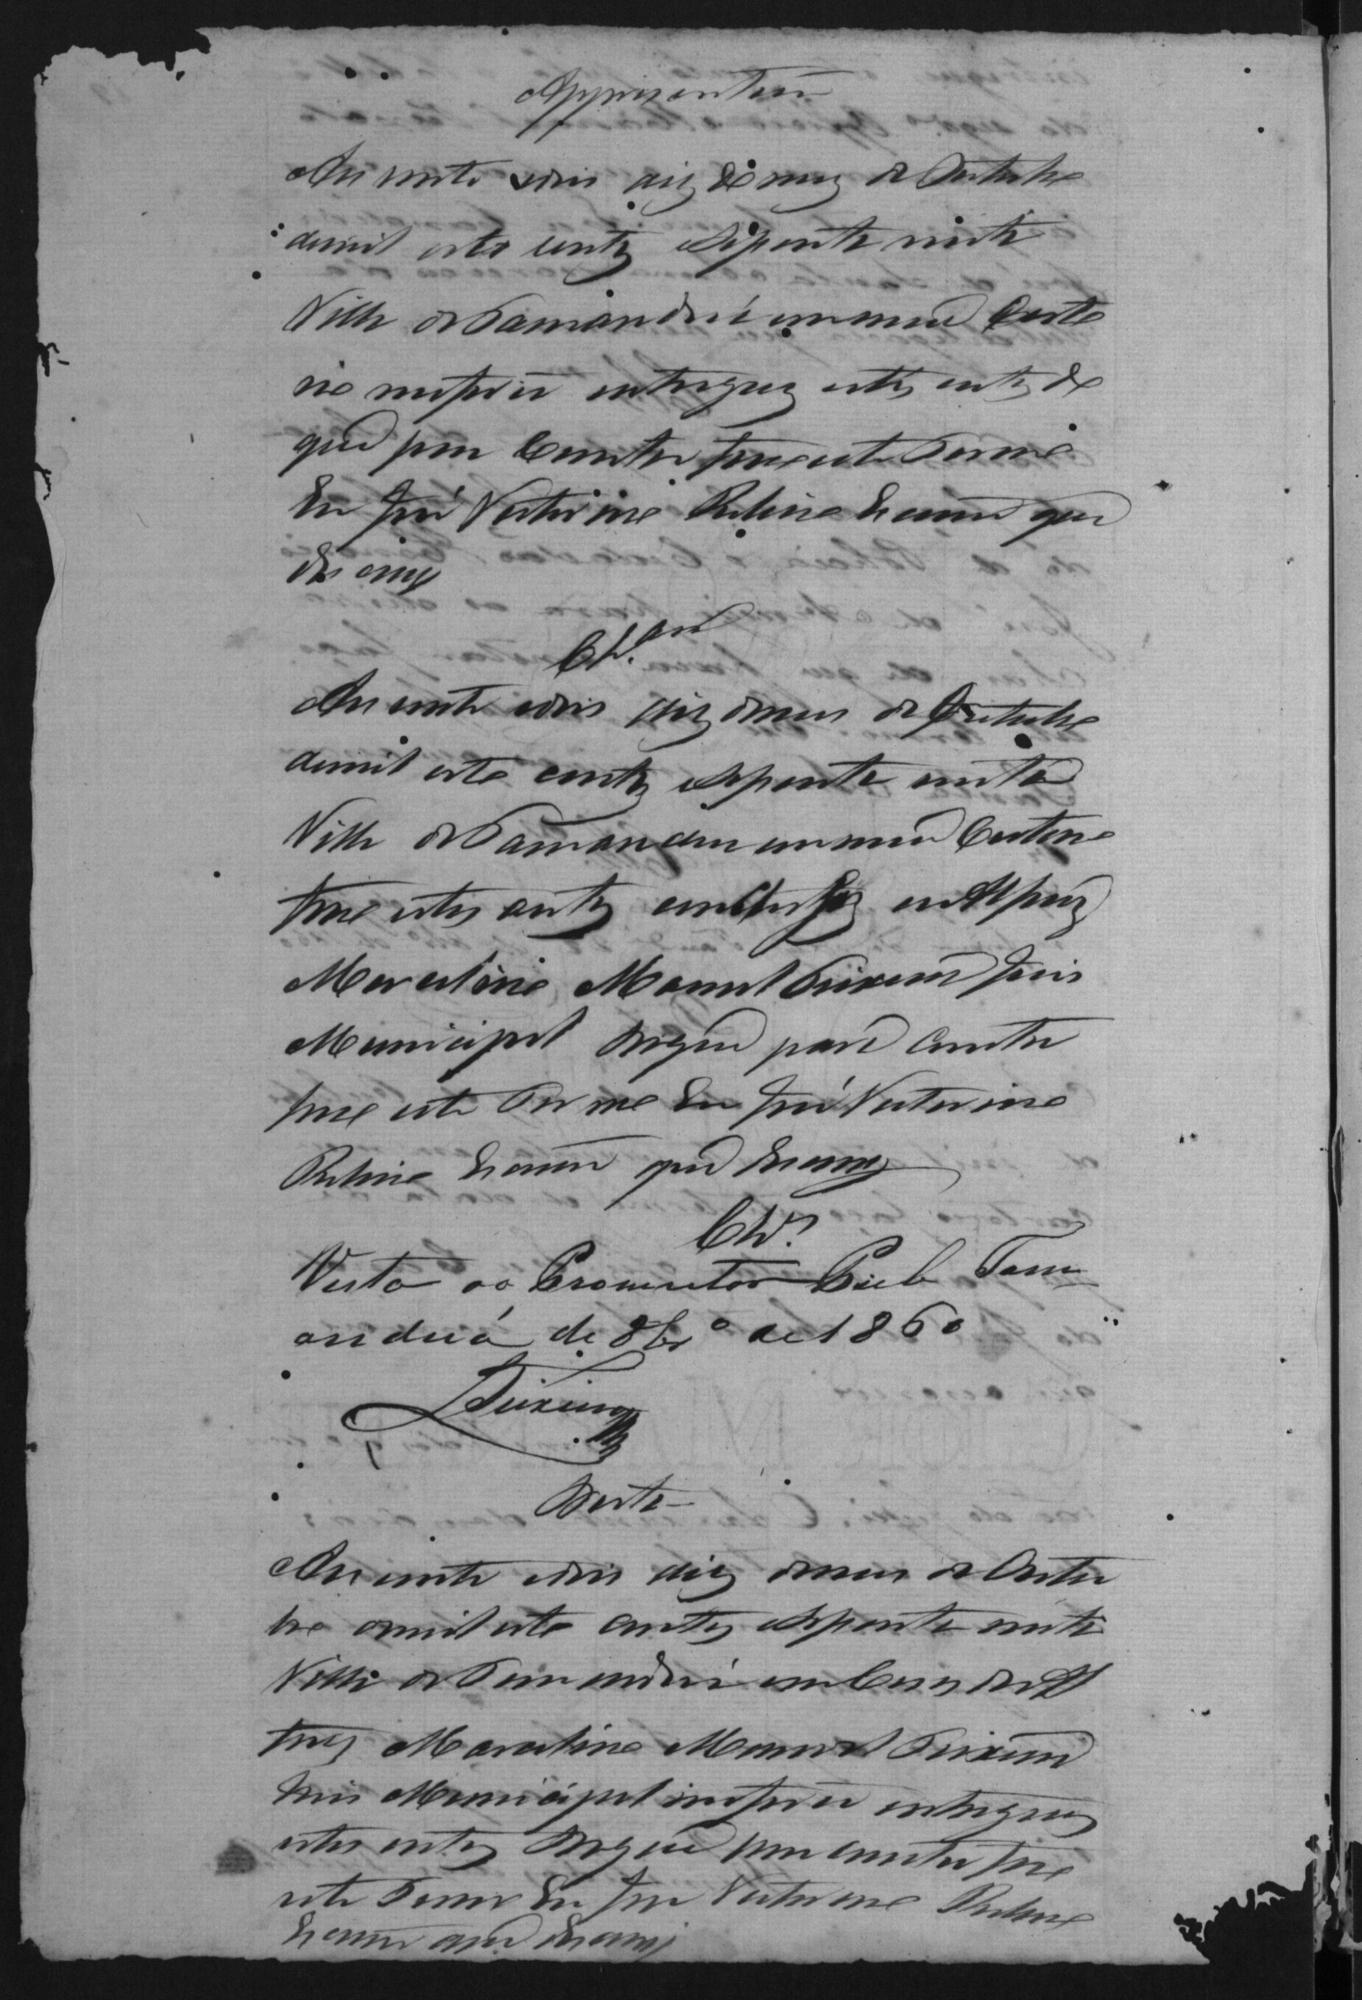 Appresentação
Aos vinte e dois dias do mez de Outubro
de mil oito centos e sessenta nesta
Villa de Tamanduá em meu Carto
rio me forão entregues estes autos de
que para Constar faço este Termo
Eu José Victorino Escrivão que
Escrevy
Clz.am
Aos vinte e dois dias do mes de Outubro
de mil oito centos e sessenta nesta
Villa de Tamanduá em meu Cartorio
faço estes autos conclusos ao Alferes
Marcelino Manoel Teixeira Juis
Municipal do que para Constar
faço este Termo Eu José Victorino
Escrivão que Escrevy
Clz.
Vista ao Promotor Tam
anduá de 8br.º de 1860
Teixeira
Data
Aos vinte e dois dias do mes de Outu
bro de mil oito centos e sessenta nesta
Villa de Tamanduá em Casas do Al
feres Marcelino Manoel Teixeira
Juis Municipal me forão entregues
estes autos do que para constar faço
este Termo Eu José Victorino
Escrivão que Escrevy